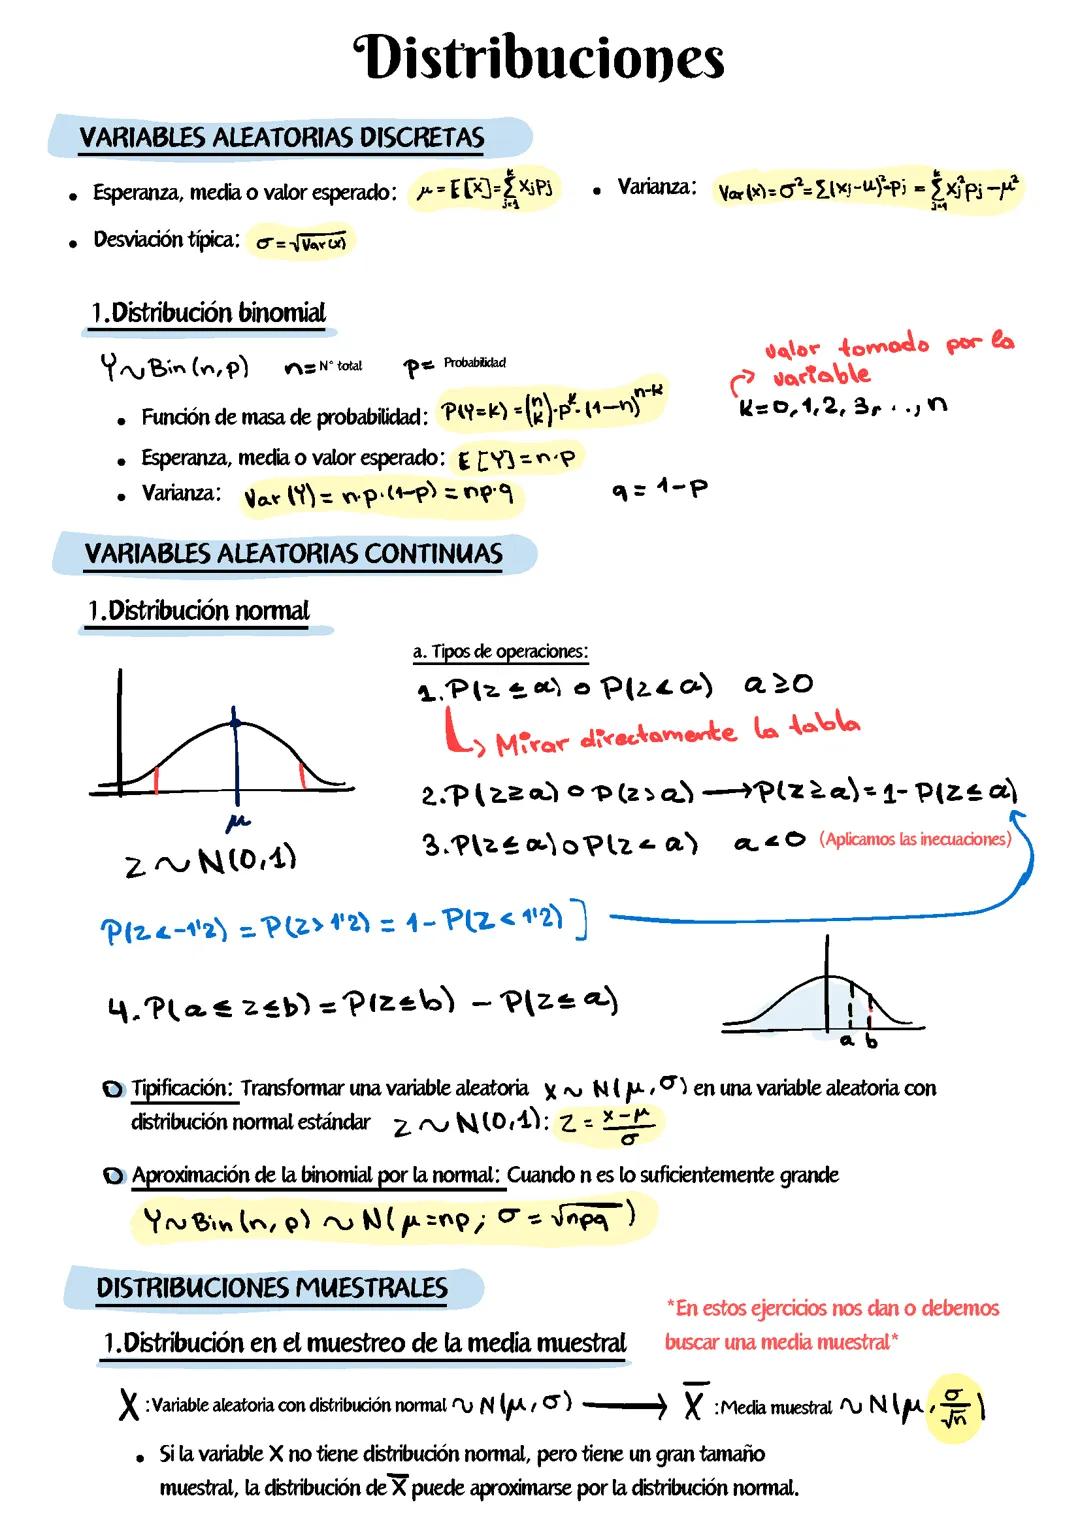 Distribuciones
VARIABLES ALEATORIAS DISCRETAS
• Esperanza, media o valor esperado: μ = E[X] = ∑_{j=1}^{k} XjPj • Varianza: Var(x) = σ² = ∑(xj-μ)²·Pj = ∑_{j=1}^{k} xj²pj - μ²
• Desviación típica: σ = √Var(x)
1.Distribución binomial
Y ~ Bin(n,p) n = N° total p = Probabilidad
valor tomado por la
variable
• Función de masa de probabilidad: P(Y=k) = (n k)·p^k·(1-n)^{n-k} k=0,1,2,3,...,n
• Esperanza, media o valor esperado: E[Y] = n·p
• Varianza: Var(Y) = n·p·(1-p) = np·q q = 1-p
VARIABLES ALEATORIAS CONTINUAS
1.Distribución normal
a. Tipos de operaciones:
1. P(z ≤ a) o P(z < a) a ≥ 0
Mirar directamente la tabla
2. P(z ≥ a) o P(z > a) → P(z ≥ a) = 1 - P(z ≤ a)
μ
3. P(z ≤ a) o P(z < a) a < 0 (Aplicamos las inecuaciones)
z ~ N(0,1)
P(z < -1'2) = P(z > 1'2) = 1 - P(z < 1'2) ]
4. P(a ≤ z ≤ b) = P(z ≤ b) - P(z ≤ a)
a b
Tipificación: Transformar una variable aleatoria x ~ N(μ,σ) en una variable aleatoria con
distribución normal estándar z ~ N(0,1): z = (x-μ)/σ
Aproximación de la binomial por la normal: Cuando n es lo suficientemente grande
Y ~ Bin(n,p) ~ N(μ=np; σ=√npq)
DISTRIBUCIONES MUESTRALES
*En estos ejercicios nos dan o debemos
buscar una media muestral*
1.Distribución en el muestreo de la media muestral
X : Variable aleatoria con distribución normal ~ N(μ,σ) → X̄ : Media muestral ~ N(μ, σ/√n)
• Si la variable X no tiene distribución normal, pero tiene un gran tamaño
muestral, la distribución de X̄ puede aproximarse por la distribución normal.